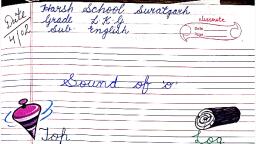 Date
4/02
Harsh School Suratgarh
Grade L K G
Sub English
classmate
Date
Page
Sound of 'o'
Top
Log